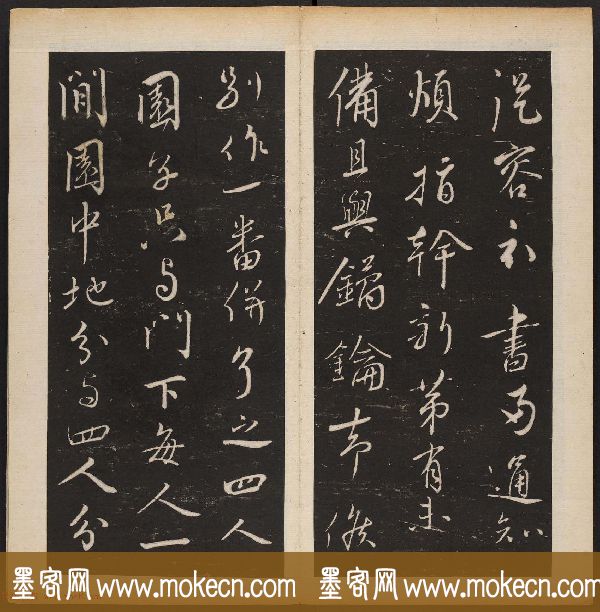 從容示書通知
煩指幹新第有未
備且與鐍鑰候
別作一番併了之四人
園子只与門下每人一
間園中地分与四人分
墨客网 www.mokecn.com
墨客网 www.mokecn.com